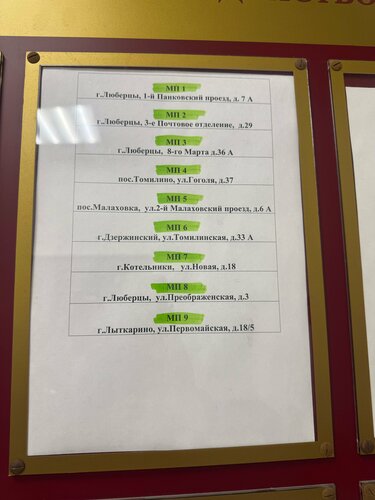 МП 1
г.Люберцы, 1-й Панковский проезд, д. 7 А
МП 2
г.Люберцы, 3-е Почтовое отделение, д.29
МП 3
г.Люберцы, 8-го Марта д.36 А
МП 4
пос.Томилино, ул.Гоголя, д.37
МП 5
пос.Малаховка, ул.2-й Малаховский проезд, д.6 А
МП 6
г.Дзержинский, ул.Томилинская, д.33 А
МП 7
г.Котельники, ул.Новая, д.18
МП 8
г.Люберцы, ул.Преображенская, д.3
МП 9
г.Лыткарино, ул.Первомайская, д.18/5